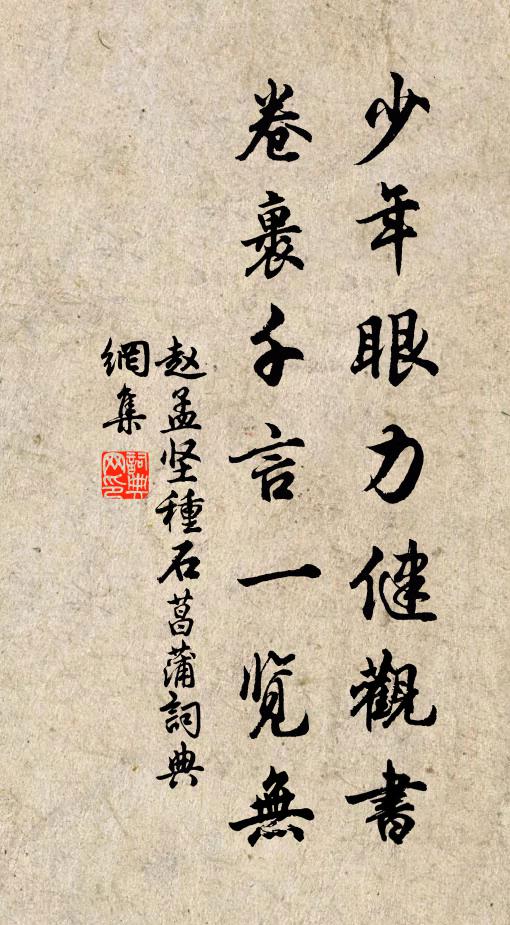 少年眼力健觀書
卷裏千言一览無
赵孟坚種石菖蒲詞典
網集
詞典网印